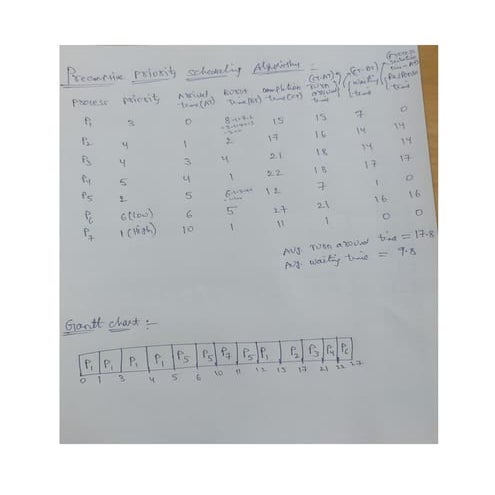 Preemptive priority scheduling Algorithm :-
process priority Arrival time(AT) Burst time(BT) completion time(CT) (CT-AT) Turn around time (TT-BT) waiting time Response time
P1 3 0 8 15 15 7 0
P2 4 1 2 17 16 14 14
P3 4 3 4 21 18 14 14
P4 5 4 1 22 18 17 17
P5 2 5 6 12 7 1 0
P6 6(Low) 6 5 27 21 16 16
P7 1(High) 10 1 11 1 0 0
Avg. Turn around time = 17.8
Avg. waiting time = 9.8
Gantt chart :-
P1 P1 P1 P1 P5 P5 P7 P5 P1 P2 P3 P4 P6
0 1 3 4 5 6 10 11 12 15 17 21 22 27